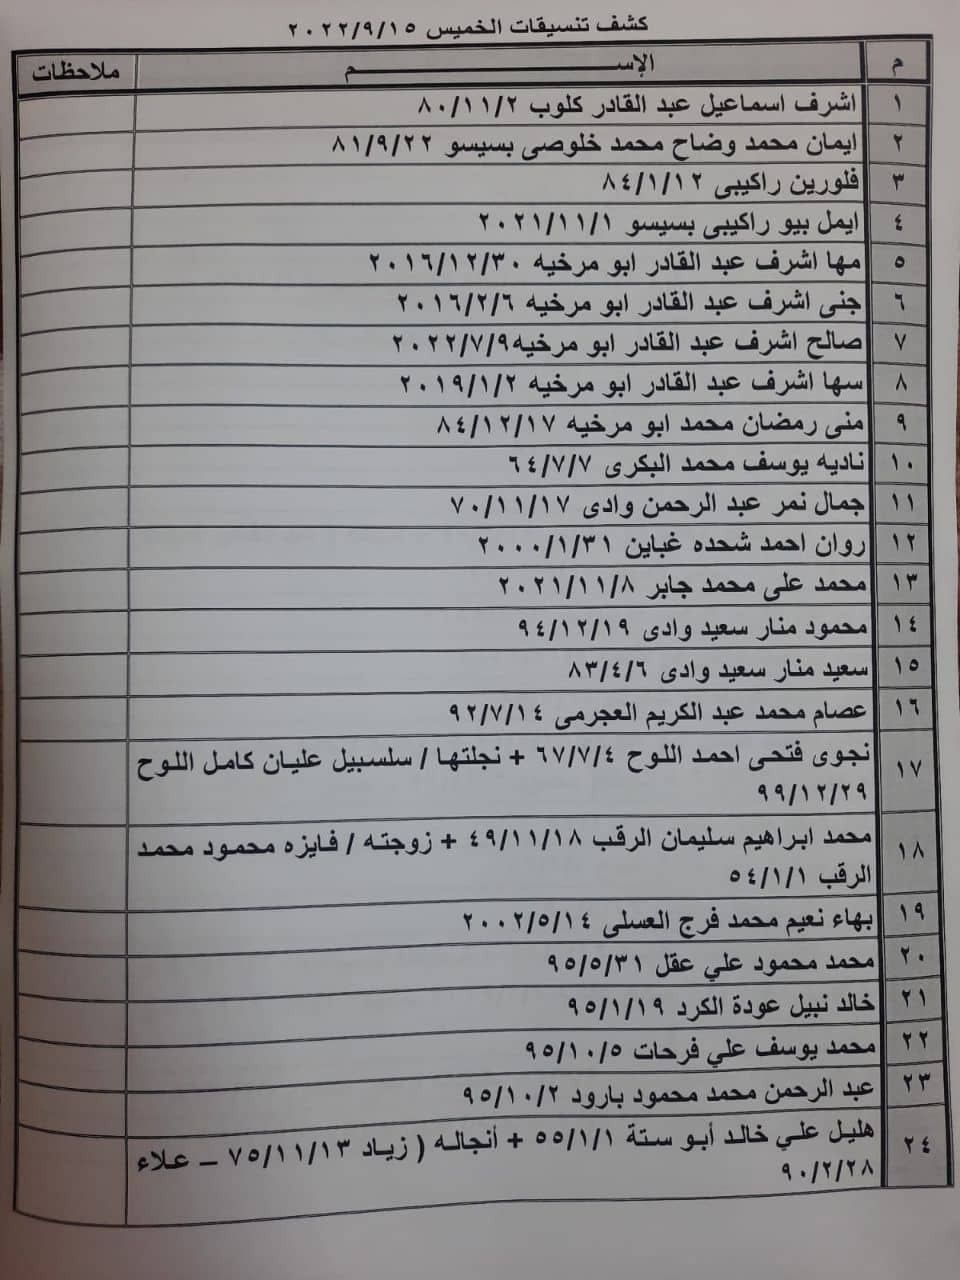 كشف تنسيقات الخميس ٢٠٢٢/٩/١٥
م الإســـــــــــــــم ملاحظات
١ اشرف اسماعيل عبد القادر كلوب ٨٠/١١/٢
٢ ايمان محمد وضاح محمد خلوصى بسيسو ٨١/٩/٢٢
٣ فلورين راكيبى ٨٤/١/١٢
٤ ايمل بيو راكيبى بسيسو ٢٠٢١/١١/١
٥ مها اشرف عبد القادر ابو مرخيه ٢٠١٦/١٢/٣٠
٦ جنى اشرف عبد القادر ابو مرخيه ٢٠١٦/٢/٦
٧ صالح اشرف عبد القادر ابو مرخيه٢٠٢٢/٧/٩
٨ سها اشرف عبد القادر ابو مرخيه ٢٠١٩/١/٢
٩ منى رمضان محمد ابو مرخيه ٨٤/١٢/١٧
١٠ ناديه يوسف محمد البكرى ٦٤/٧/٧
١١ جمال نمر عبد الرحمن وادى ٧٠/١١/١٧
١٢ روان احمد شحده غباين ٢٠٠٠/١/٣١
١٣ محمد على محمد جابر ٢٠٢١/١١/٨
١٤ محمود منار سعيد وادى ٩٤/١٢/١٩
١٥ سعيد منار سعيد وادى ٨٣/٤/٦
١٦ عصام محمد عبد الكريم العجرمى ٩٢/٧/١٤
١٧ نجوى فتحى احمد اللوح ٦٧/٧/٤ + نجلتها / سلسبيل عليان كامل اللوح
٩٩/١٢/٢٩
١٨ محمد ابراهيم سليمان الرقب ٤٩/١١/١٨ + زوجته / فايزه محمود محمد
الرقب ٥٤/١/١
١٩ بهاء نعيم محمد فرج العسلى ٢٠٠٢/٥/١٤
٢٠ محمد محمود علي عقل ٩٥/٥/٣١
٢١ خالد نبيل عودة الكرد ٩٥/١/١٩
٢٢ محمد يوسف علي فرحات ٩٥/١٠/٥
٢٣ عبد الرحمن محمد محمود بارود ٩٥/١٠/٢
٢٤ هليل علي خالد أبو ستة ٥٥/١/١ + أنجاله ( زياد ٧٥/١١/١٣ – علاء
٩٠/٢/٢٨